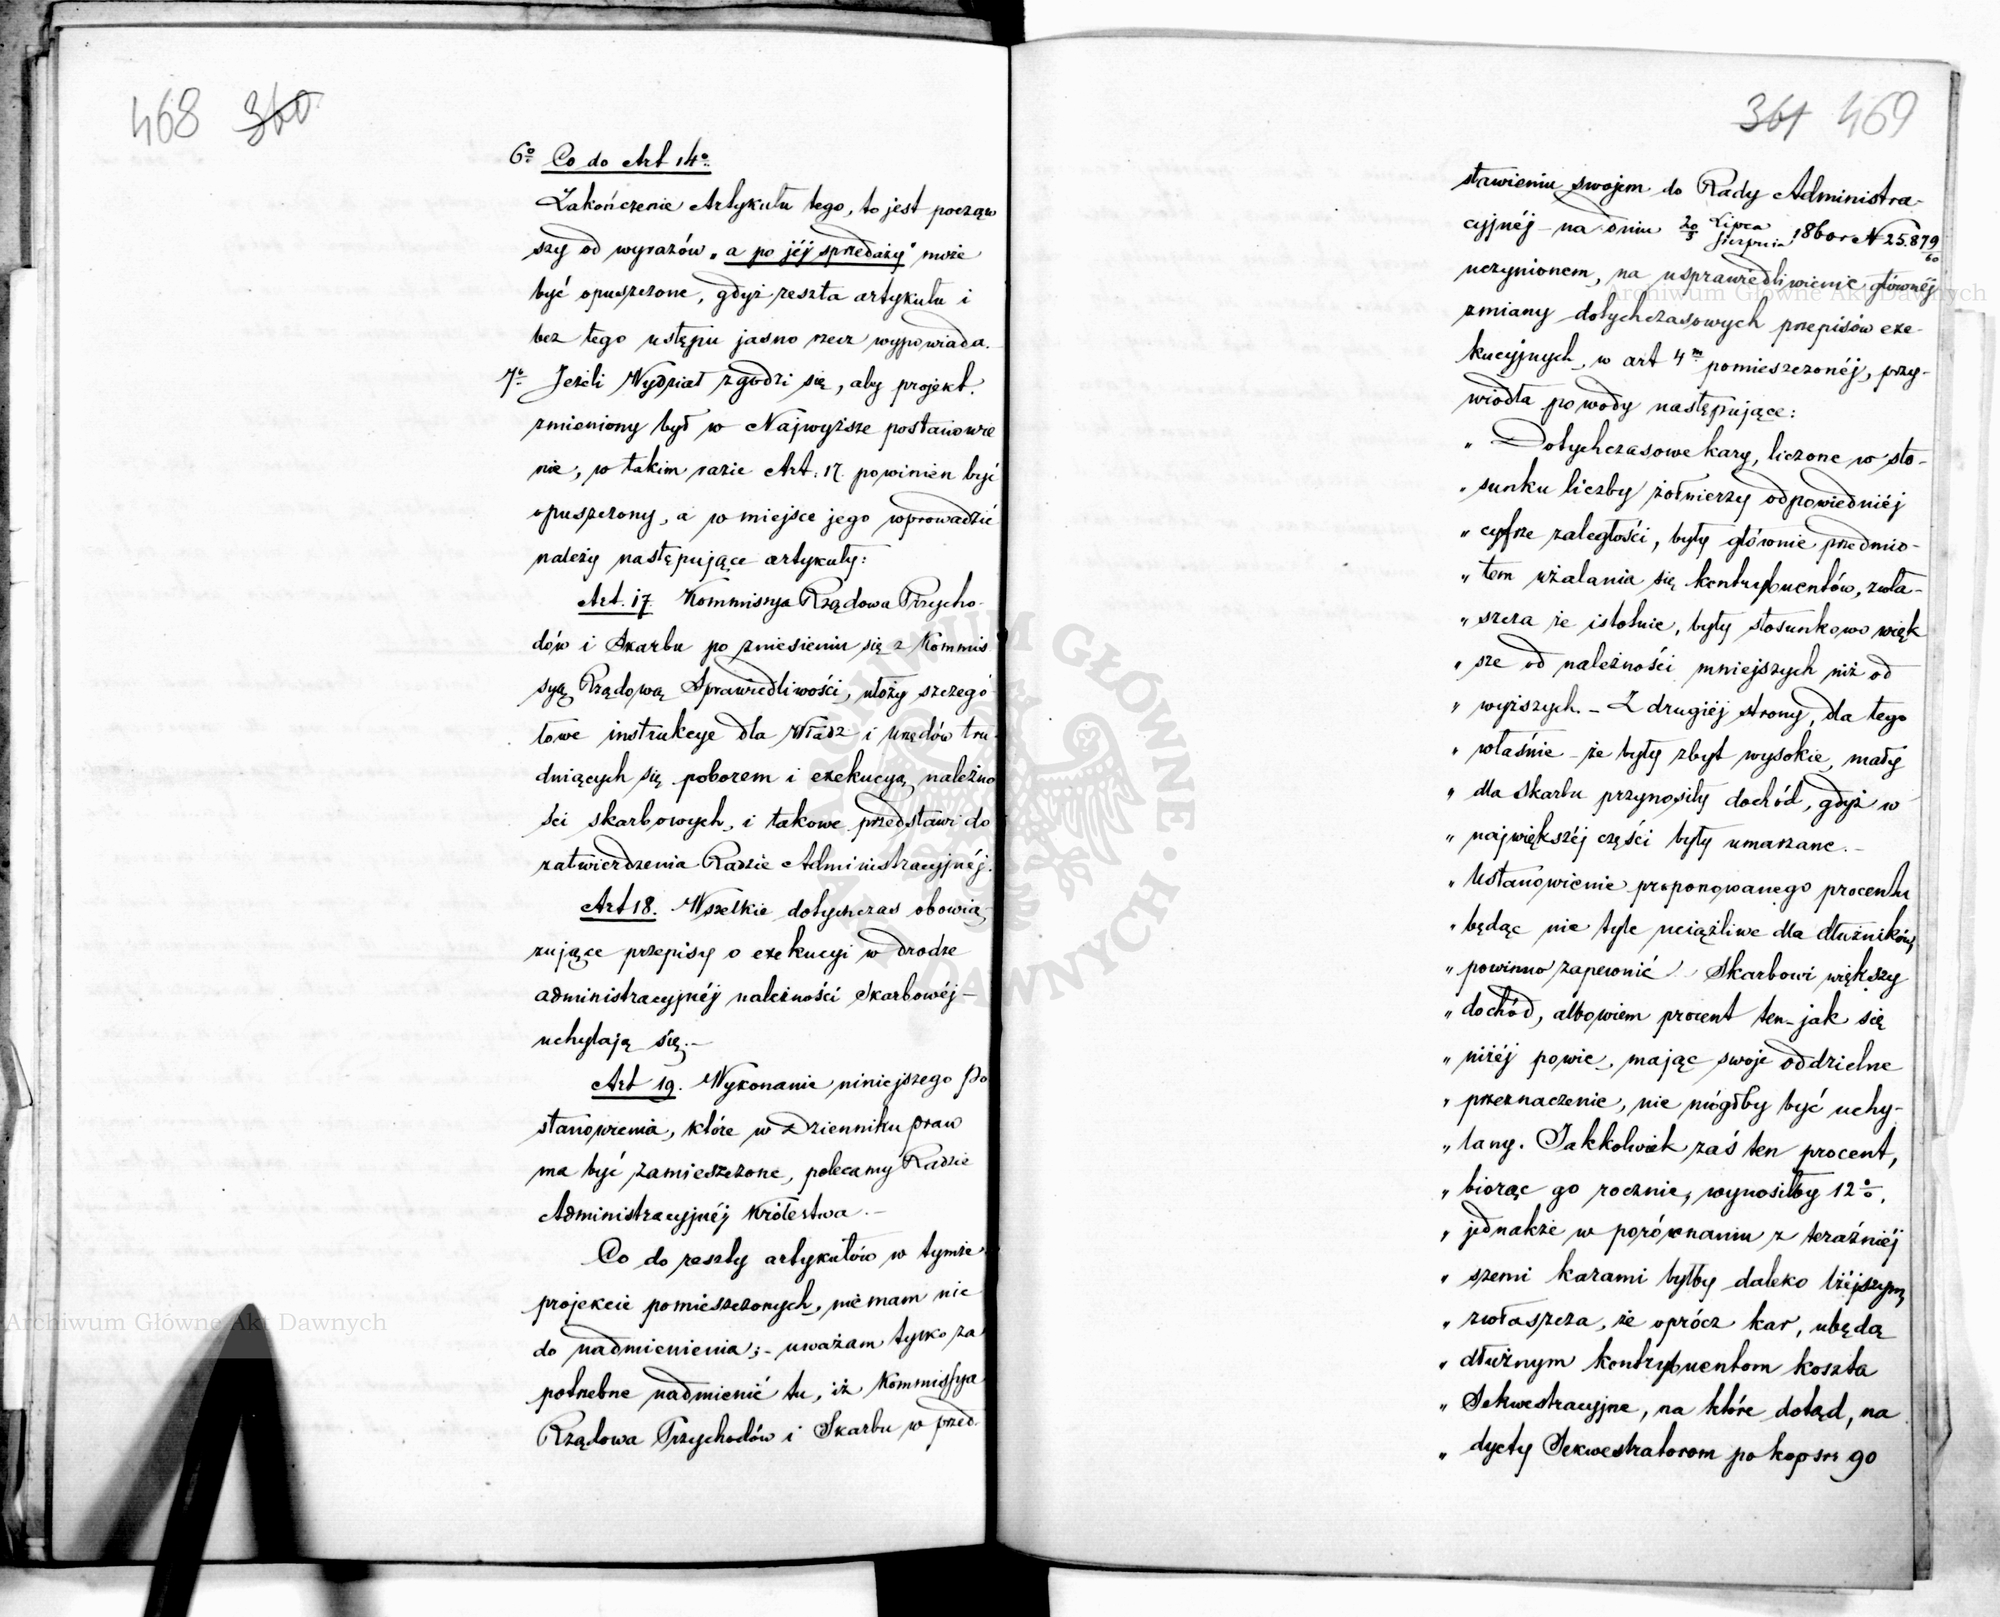 468 360
6o Co do Art 14o.
Zakończenie Artykułu tego, to jest począw
szy od wyrazów „a po jéj sprzedaży" może
być opuszczone, gdyż reszta artykułu i
bez tego ustępu jasno rzecz wypowiada.
7o Jeżeli Wydział zgodzi się, aby projekt
zmieniony był w Najwyższe postanowie
nie, w takim razie Art. 17. powinien być
opuszczony, a w miejsce jego wprowadzić
należy następujące artykuły:
Art. 17. Kommissya Rządowa Przycho-
dów i Skarbu po zniesieniu się z Kommis
syą Rządową Sprawiedliwości, ułoży szczegó-
łowe instrukcye dla Władz i Urzędów tru-
dniących się poborem i exekucyą należno
ści skarbowych, i takowe przedstawi do
zatwierdzenia Radzie Administracyjnéj.
Art 18. Wszelkie dotychczas obowią-
zujące przepisy o exekucyi w drodze
administracyjnéj należności Skarbowéj –
uchylają się.–
Art 19. Wykonanie niniejszego Po
stanowienia, które w Dzienniku praw
ma być zamieszczone, polecamy Radzie
Administracyjnéj Królestwa.–
Co do reszty artykułów w tymże
projekcie pomieszczonych, nie mam nic
do nadmienienia;– uważam tylko za
potrzebne nadmienić tu, iż Kommissya
Rządowa Przychodów i Skarbu w przed-
361 469
stawieniu swojem do Rady Administra-
cyjnéj – na dniu 20/3 Lipca/Sierpnia 1860 r N 25.879/60
uczynionem, na usprawiedliwienie głównéj
zmiany dotychczasowych przepisów exe-
kucyjnych, w art 4m pomieszczonéj, przy-
wiodła powody następujące:
„ Dotychczasowe kary, liczone w sto-
„ sunku liczby żołnierzy odpowiedniéj
„ cyfrze zaległości, były głównie przedmio-
„ tem użalania się kontrybuentów, zwła-
„ szcza że istotnie, były stosunkowo więk
„ sze od należności mniejszych niż od
„ wyższych.– Z drugiéj strony, dla tego
„ właśnie – że były zbyt wysokie, mały
„ dla Skarbu przynosiły dochód, gdyż w
„ największéj części były umarzane.–
„ Ustanowienie proponowanego procentu
„ będąc nie tyle uciążliwe dla dłużników,
„ powinno zapewnić Skarbowi większy
„ dochód, albowiem procent ten – jak się
„ niżéj powie, mając swoje oddzielne
„ przeznaczenie, nie mógłby być uchy-
„ lany. Jakkolwiek zaś ten procent,
„ biorąc go rocznie, wynosiłby 12%,
„ jednakże w porównaniu z teraźniéj
„ szemi karami byłby daleko lżéjszym,
„ zwłaszcza, że oprócz kar, ubędą
„ dłużnym kontrybuentom koszta
„ Sekwestracyjne, na które dotąd, na
„ dyety Sekwestratorom po kop sr 90
Archiwum Główne Akt Dawnych
Archiwum Główne Akt Dawnych
ARCHIWUM GŁÓWNE AKT DAWNYCH